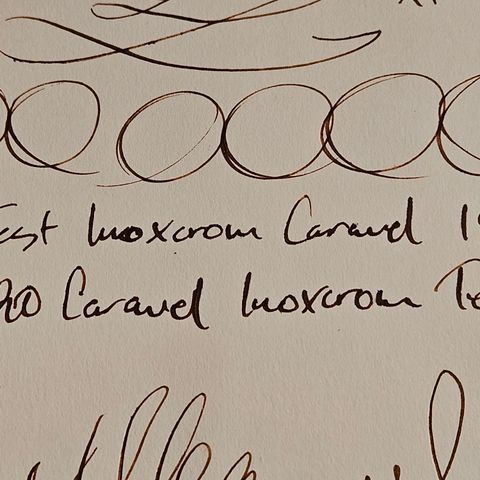 est Inoxcrom Caravel 19
Caravel Inoxcrom Te